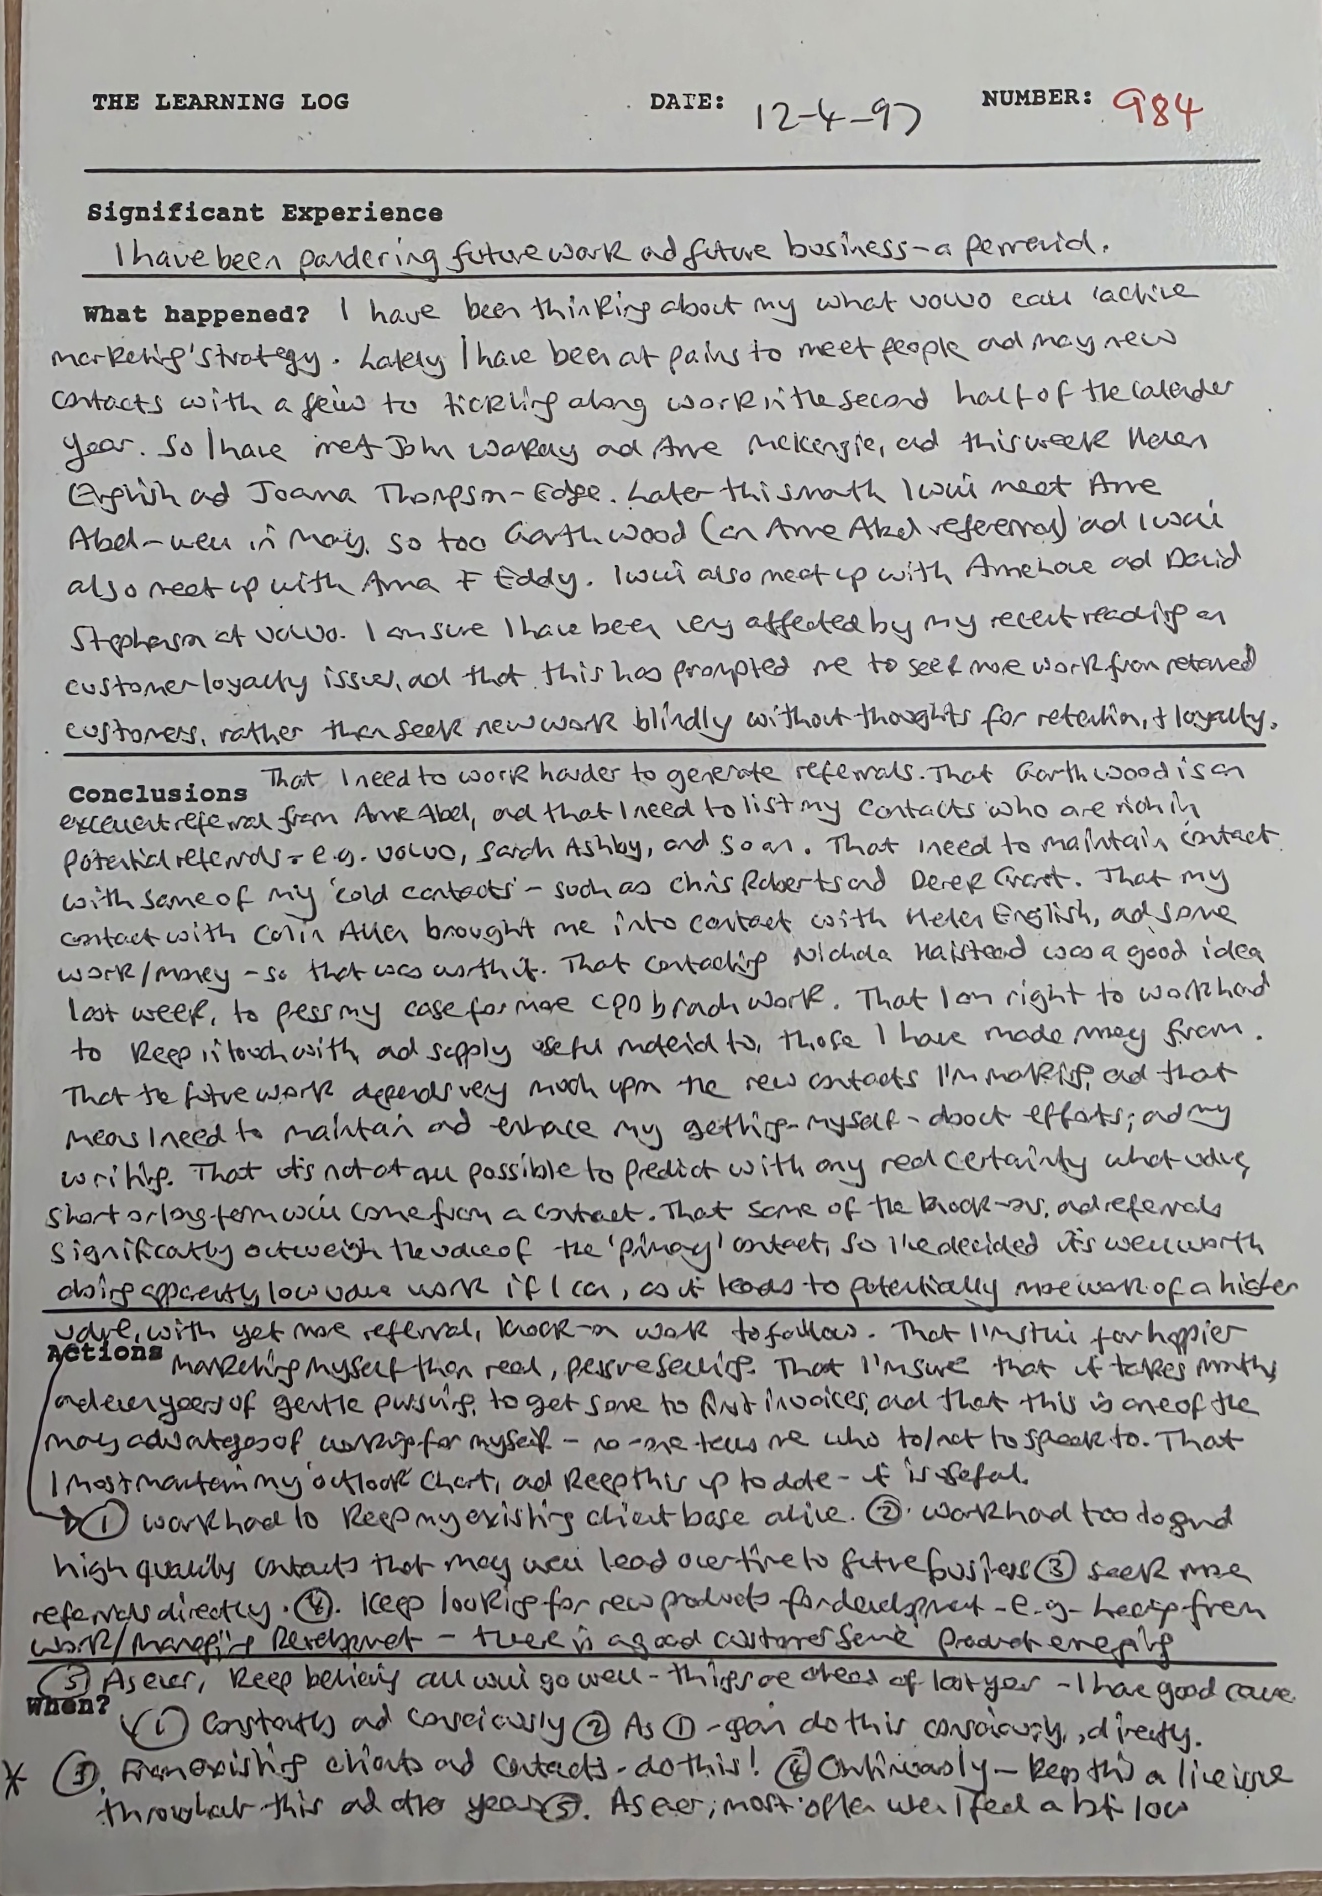 THE LEARNING LOG DATE: 12-4-97 NUMBER: 984
Significant Experience
I have been pondering future work ad future business - a perennial.
What happened? I have been thinking about my what Volvo call 'active
marketing' strategy. Lately I have been at pains to meet people ad may new
contacts with a few to tickling along work in the second half of the calender
year. So I have met John Wakely ad Anne McKenzie, ad this week Helen
English ad Joanna Thompson-Edge. Later this month I will meet Anne
Abel - well in May, so too Garth Wood (an Anne Abel referral) ad I will
also meet up with Anna F Eddy. I will also meet up with Anne Love ad David
Stephenson at Volvo. I am sure I have been very affected by my recent reading on
customer loyalty issues, ad that this has prompted me to seek more work from retained
customers, rather than seek new work blindly without thoughts for retention, + loyalty.
Conclusions That I need to work harder to generate referrals. That Garth Wood is an
excellent referral from Anne Abel, ad that I need to list my contacts who are rich in
potential referrals - e.g. Volvo, Sarah Ashby, and so on. That I need to maintain contact
with some of my 'cold contacts' - such as Chris Roberts ad Derek Grant. That my
contact with Colin Allen brought me into contact with Helen English, ad some
work/money - so that was worth it. That contacting Nichola Halstead was a good idea
last week, to press my case for more CPD branch work. That I am right to work hard
to keep in touch with, ad supply useful material to, those I have made money from.
That the future work depends very much upon the new contacts I'm making, ad that
means I need to maintain ad enhance my getting-myself-about efforts; ad my
writing. That it's not at all possible to predict with any real certainty what value,
short or long-term will come from a contact. That some of the knock-ons, ad referrals
significantly outweigh the value of the 'primary' contact, so I've decided it's well worth
doing apparently low value work if I can, as it leads to potentially more work of a higher
value, with yet more referral, knock-on work to follow. That I'm still far happier
Actions marketing myself than real, pressure selling. That I'm sure that it takes months,
ad even years of gentle pursuing, to get some to first invoices, ad that this is one of the
many advantages of working for myself - no-one tells me who to/not to speak to. That
I must maintain my 'outlook' chart, ad keep this up to date - it is useful.
① Work hard to keep my existing client base alive. ② Work hard too do good
high quality contacts that may well lead over time to future business ③ Seek more
referrals directly. ④. Keep looking for new products for development - e.g.
work/Managing Development - there is a good customer service product emerging
⑤ As ever, keep believing all will go well - things are ahead of last year - I have good cause
When? ① Constantly ad consciously ② As ① - again do this consciously, directly.
* ③. From existing clients ad contacts - do this! ④ Continuously - keep this a live issue
throughout this ad other years ⑤. As ever, most often when I feel a bit low